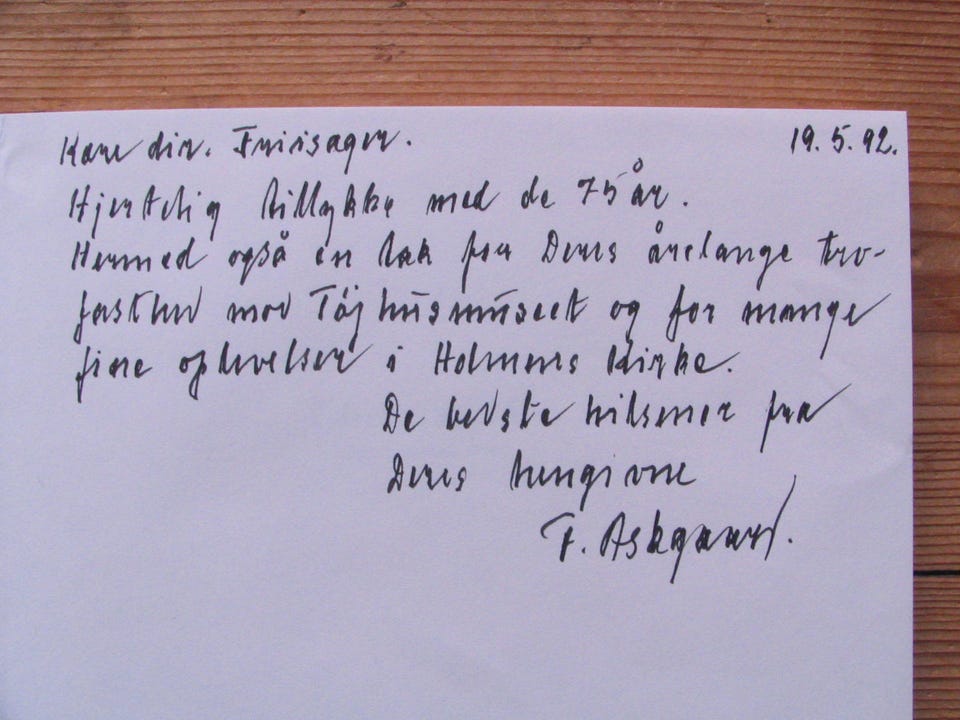 Kære dir. Friisager. 19.5.92.
Hjertelig tillykke med de 75 år.
Hermed også en tak for Deres årelange tro-
fasthed mod Tøjhusmuseet og for mange
fine oplevelser i Holmens Kirke.
De bedste hilsener fra
Deres hengivne
F. Askgaard.